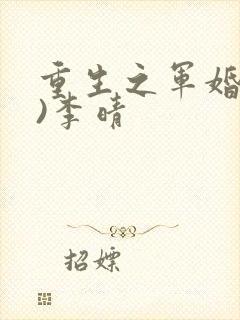 重生之军婚
)李晴
招嫖